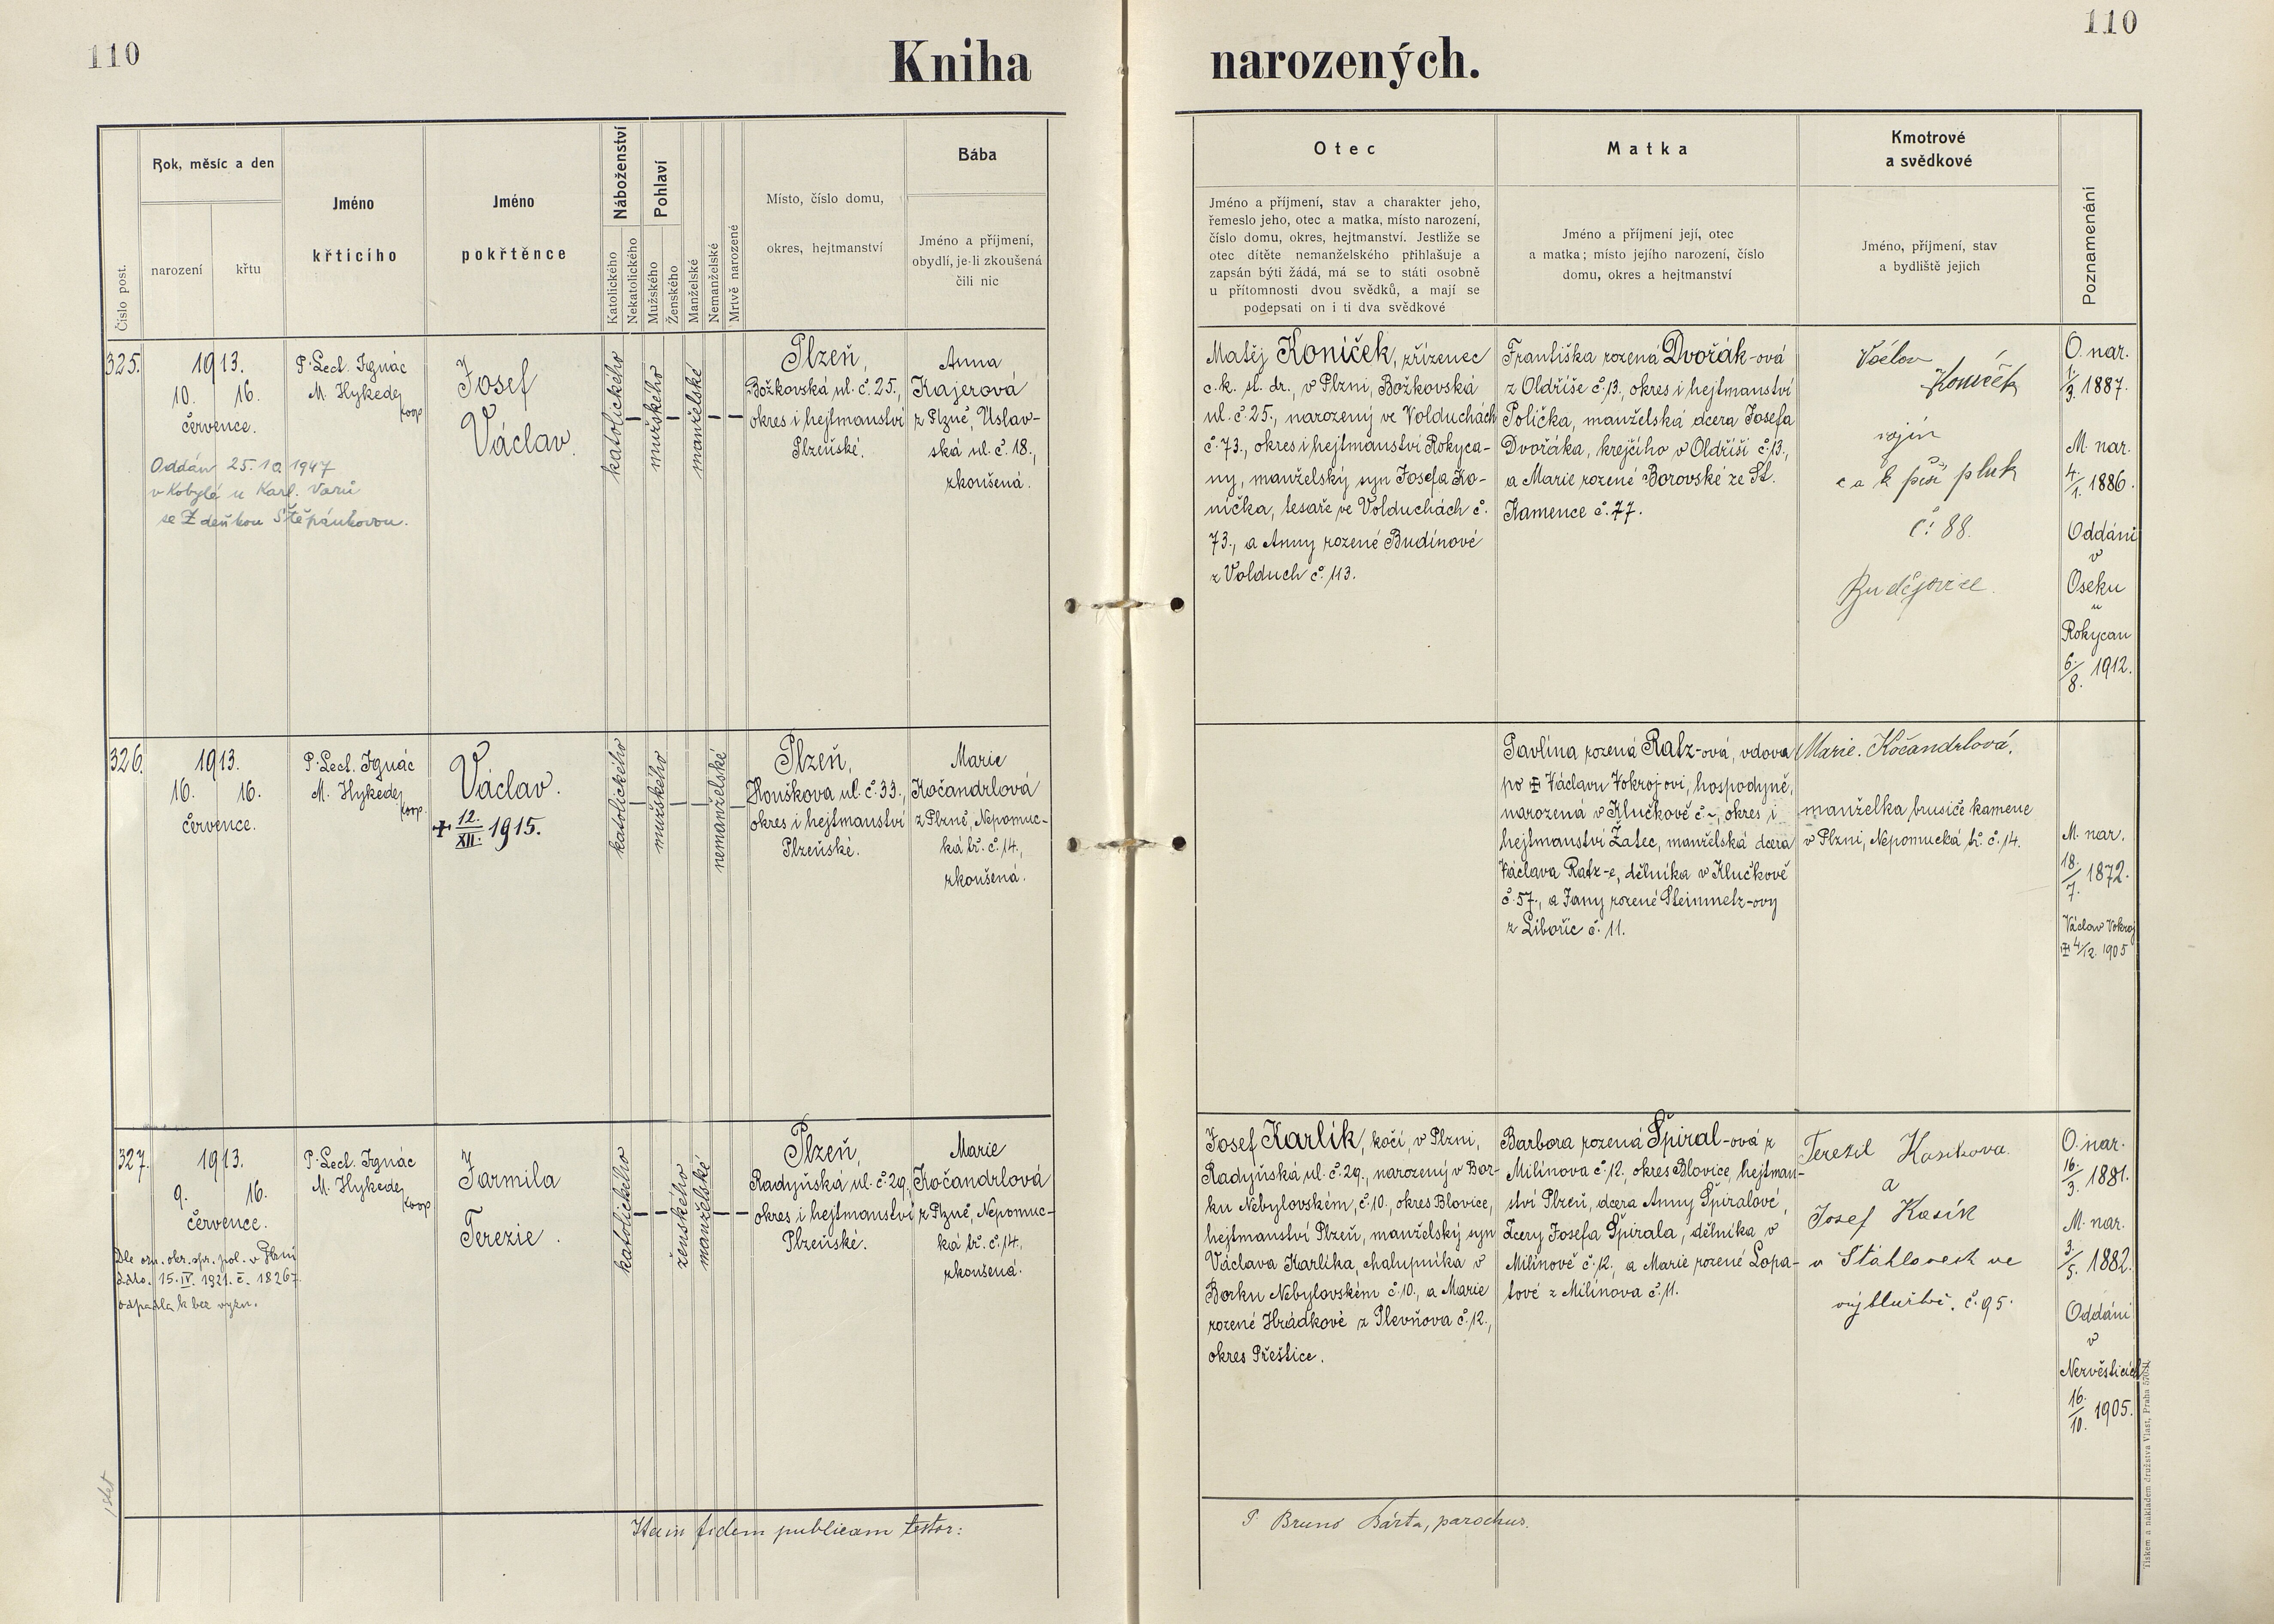 110
Kniha
narozených.
110
Číslo post.
Rok, měsíc a den
narození
křtu
Jméno
křtícího
Jméno
pokřtěnce
Náboženství
Katolického
Nekatolického
Pohlaví
Mužského
Ženského
Manželské
Nemanželské
Mrtvě narozené
Místo, číslo domu,
okres, hejtmanství
Bába
Jméno a příjmení,
obydlí, je-li zkoušená
čili nic
Otec
Jméno a příjmení, stav a charakter jeho,
řemeslo jeho, otec a matka, místo narození,
číslo domu, okres, hejtmanství. Jestliže se
otec dítěte nemanželského přihlašuje a
zapsán býti žádá, má se to státi osobně
u přítomnosti dvou svědků, a mají se
podepsati on i ti dva svědkové
Matka
Jméno a příjmení její, otec
a matka; místo jejího narození, číslo
domu, okres a hejtmanství
Kmotrové
a svědkové
Jméno, příjmení, stav
a bydliště jejich
Poznamenání
325.
1913.
10. 16.
července.
Oddán 25.10.1947
v Kobylé u Karl. Varů
se Zdeňkou Štěpánkovou.
P. Lect. Ignác
M. Hykede,
koop
Josef
Václav.
katolického
mužského
manželské
Plzeň,
Božkovská ul. č. 25.,
okres i hejtmanství
Plzeňské.
Anna
Kajerová
z Plzně, Úslav-
ská ul. č. 18.,
zkoušená.
Matěj Koníček, zřízenec
c. k. st. dr., v Plzni, Božkovská
ul. č. 25., narozený ve Volduchách
č. 73., okres i hejtmanství Rokyca-
ny, manželský syn Josefa Ko-
níčka, tesaře ve Volduchách č.
73., a Anny rozené Budínové
z Volduch č. 113.
Františka rozená Dvořák-ová
z Oldříše č. 13., okres i hejtmanství
Polička, manželská dcera Josefa
Dvořáka, krejčího v Oldříši č. 13.,
a Marie rozené Borovské ze St.
Kamence č. 77.
Václav
Koníček
vojín
c a k pěší pluk
č: 88.
Budějovice.
O. nar.
1./3. 1887.
M. nar.
4./1. 1886.
Oddáni
v
Oseku
u
Rokycan
6./8. 1912.
326.
1913.
16. 16.
července.
P. Lect. Ignác
M. Hykede,
koop.
Václav.
+ 12./XII. 1915.
katolického
mužského
nemanželské
Plzeň,
Houškova ul. č. 33.,
okres i hejtmanství
Plzeňské.
Marie
Kočandrlová
z Plzně, Nepomuc-
ká tř. č. 14.,
zkoušená.
Pavlína rozená Ratz-ová, vdova
po + Václavu Vokrojovi, hospodyně,
narozená v Klučkově č. ~, okres i
hejtmanství Žatec, manželská dcera
Václava Ratz-e, dělníka v Klučkově
č. 57., a Jany rozené Steinmetz-ovy
z Libořic č. 11.
Marie. Kočandrlová.
manželka brusiče kamene
v Plzni, Nepomucká tř. č. 14.
M. nar.
18./7. 1872.
Václav Vokroj
+ 4/12. 1905
327.
1913.
9. 16.
července.
Dle ozn. okr. spr. pol. v Plzni
ddto. 15.IV. 1921. č. 18267
odpadla k bez vyzn.
P. Lect. Ignác
M. Hykede,
koop
Jarmila
Terezie.
katolického
ženského
manželské
Plzeň,
Radyňská ul. č. 29.,
okres i hejtmanství
Plzeňské.
Marie
Kočandrlová
z Plzně, Nepomuc-
ká tř. č. 14.,
zkoušená.
Josef Karlík, kočí, v Plzni,
Radyňská ul. č. 29., narozený v Bor-
ku Nebylovském, č. 10., okres Blovice,
hejtmanství Plzeň, manželský syn
Václava Karlíka, chalupníka v
Borku Nebylovském č. 10., a Marie
rozené Hrádkové z Plevňova č. 12.,
okres Přeštice.
Barbora rozená Špiral-ová z
Milínova č. 12., okres Blovice, hejtman-
ství Plzeň, dcera Anny Špiralové,
dcery Josefa Špirala, dělníka v
Milínově č. 12., a Marie rozené Lopa-
tové z Milínova č. 11.
Kasíkova.
a
Josef Kasík
č. 95.
O. nar.
16./3. 1881.
M. nar.
3./5. 1882.
Oddáni
v
Nezvěsticích
16./10. 1905.
Ita in fidem publicam testor:
P Bruno Bárta, parochus.
Tiskem a nákladem družstva Vlast, Praha